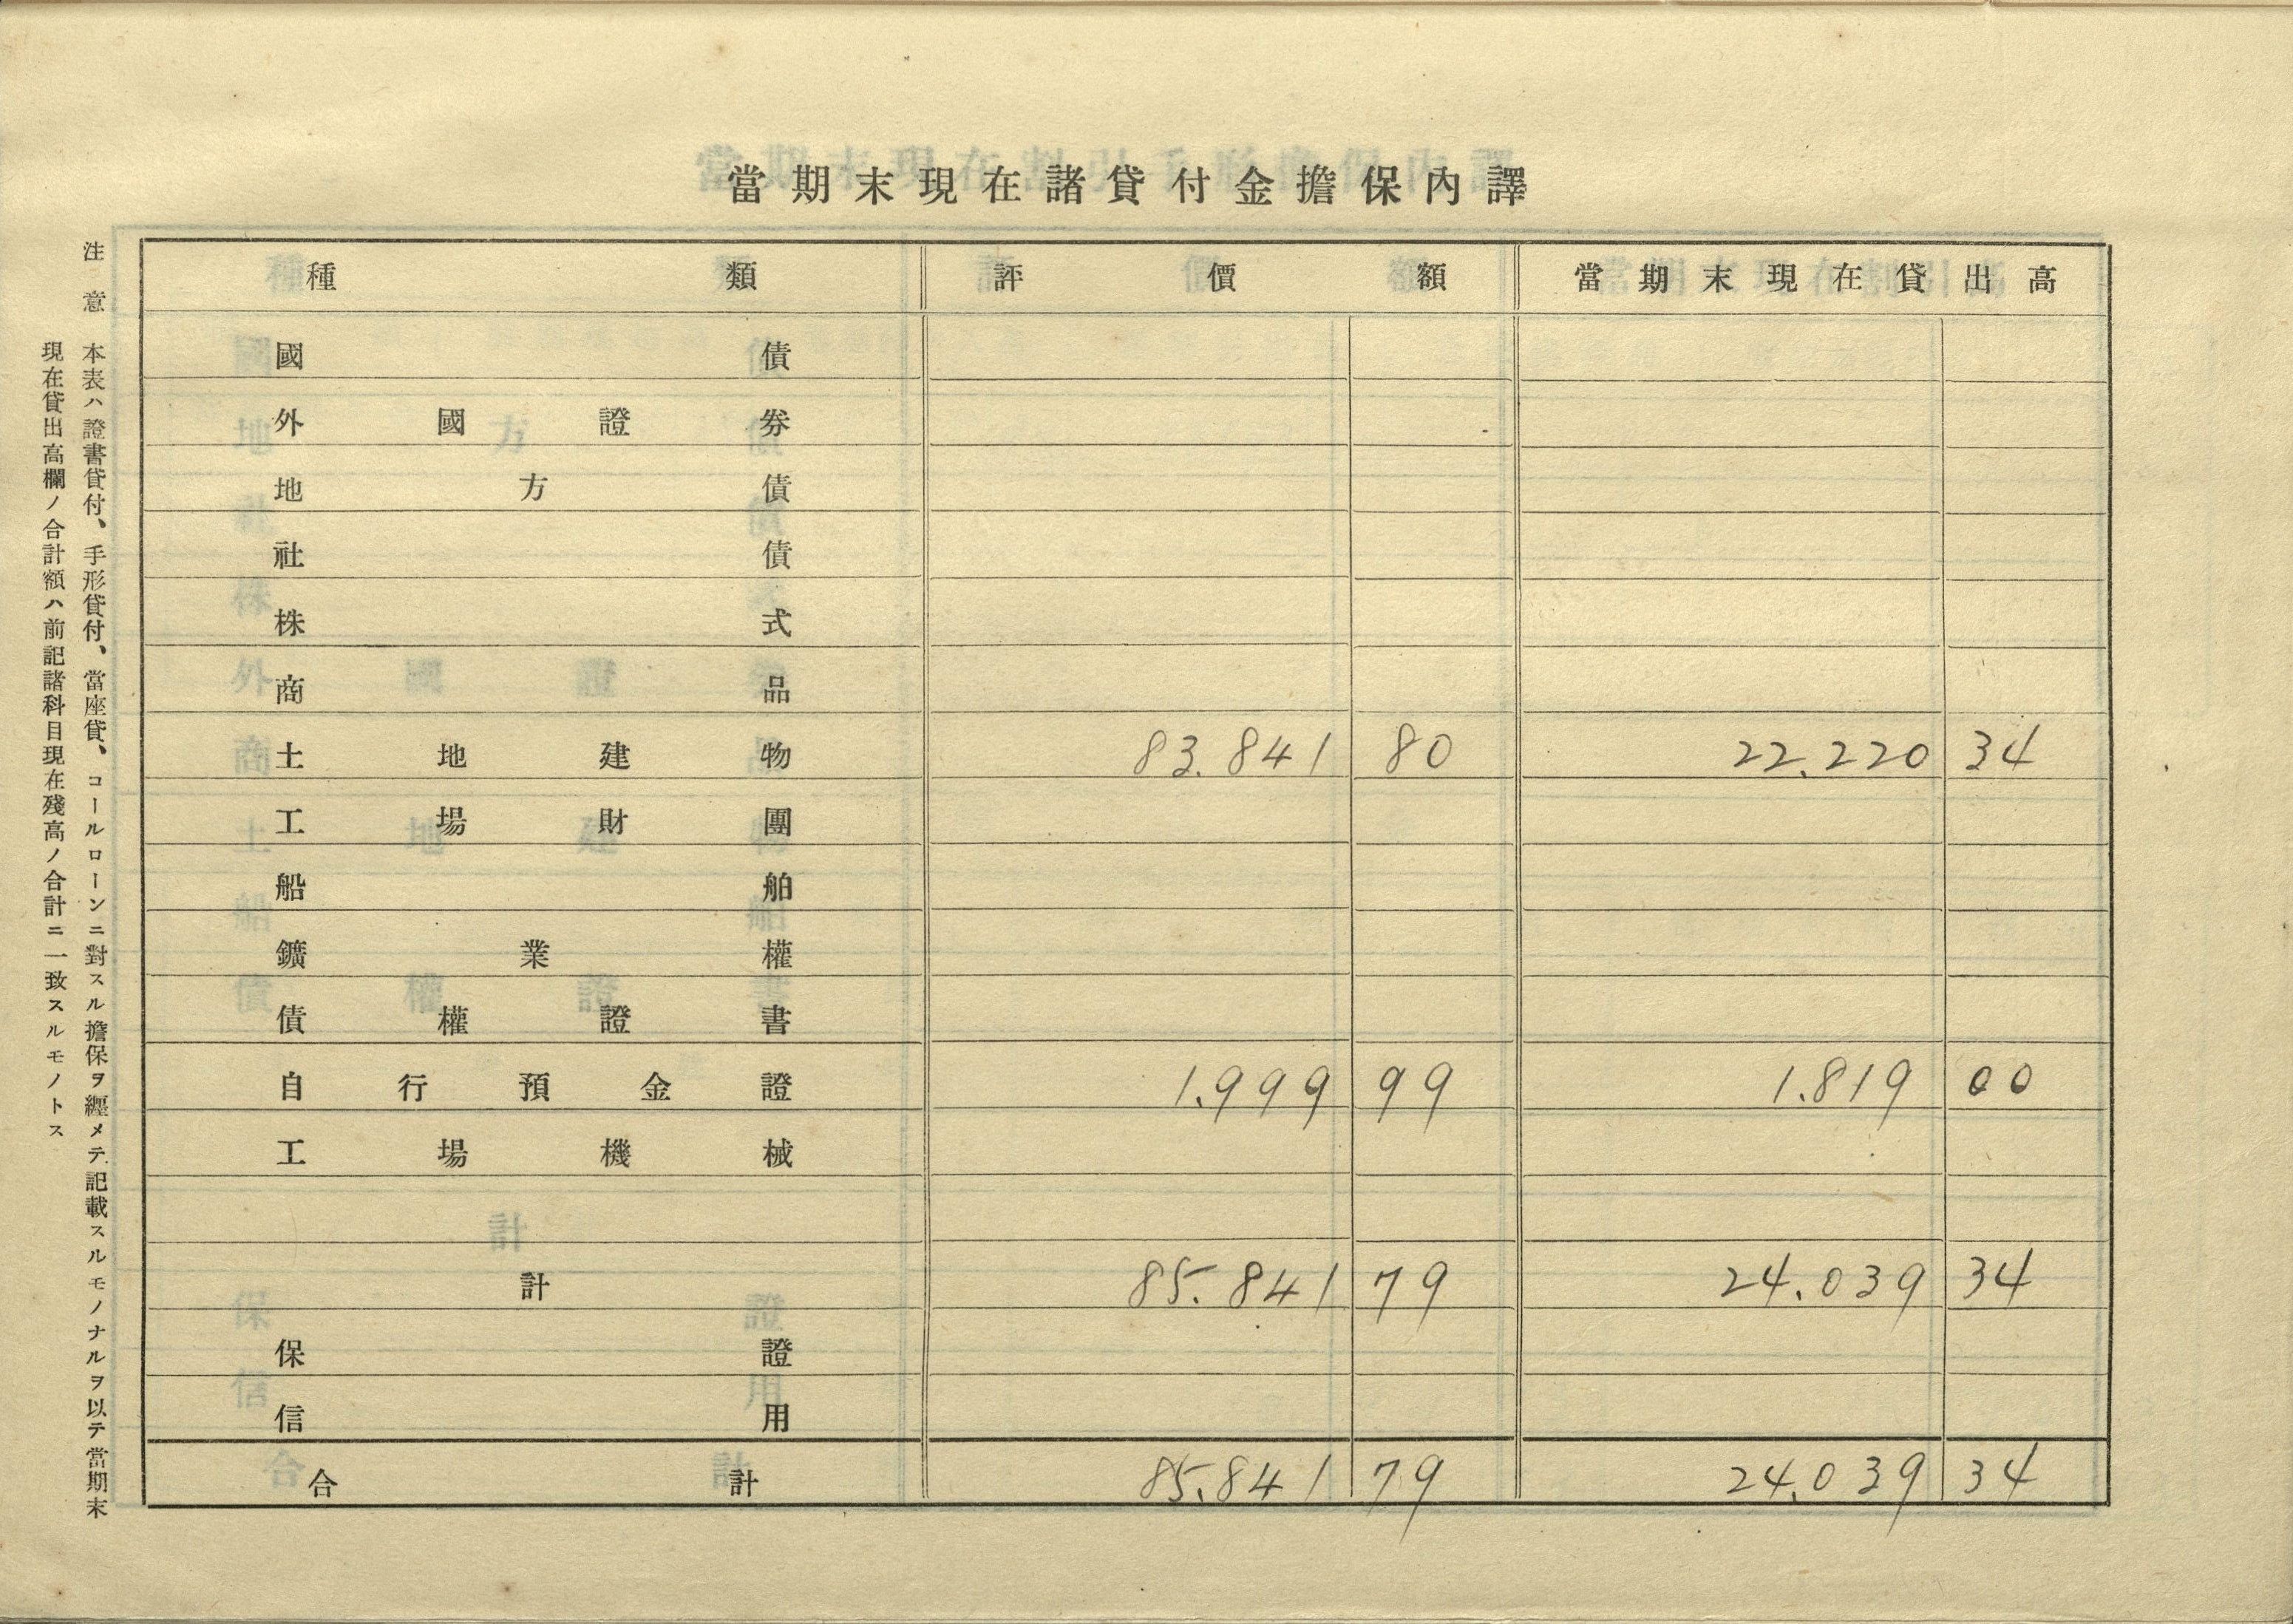 當期末現在諸貸付金擔保內譯
種類 評價額 當期末現在貸出高
國債
外國證券
地方債
社債
株式
商品
土地建物 83.841 80 22.220 34
工場財團
船舶
鑛業權
債權證書
自行預金證 1.999 99 1.819 00
工場機械
計 85.841 79 24.039 34
保證
信用
合計 85.841 79 24.039 34
注意 本表ハ證書貸付、手形貸付、當座貸、コールローンニ對スル擔保ヲ纒メテ記載スルモノナルヲ以テ當期末
現在貸出高欄ノ合計額ハ前記諸科目現在殘高ノ合計ニ一致スルモノトス